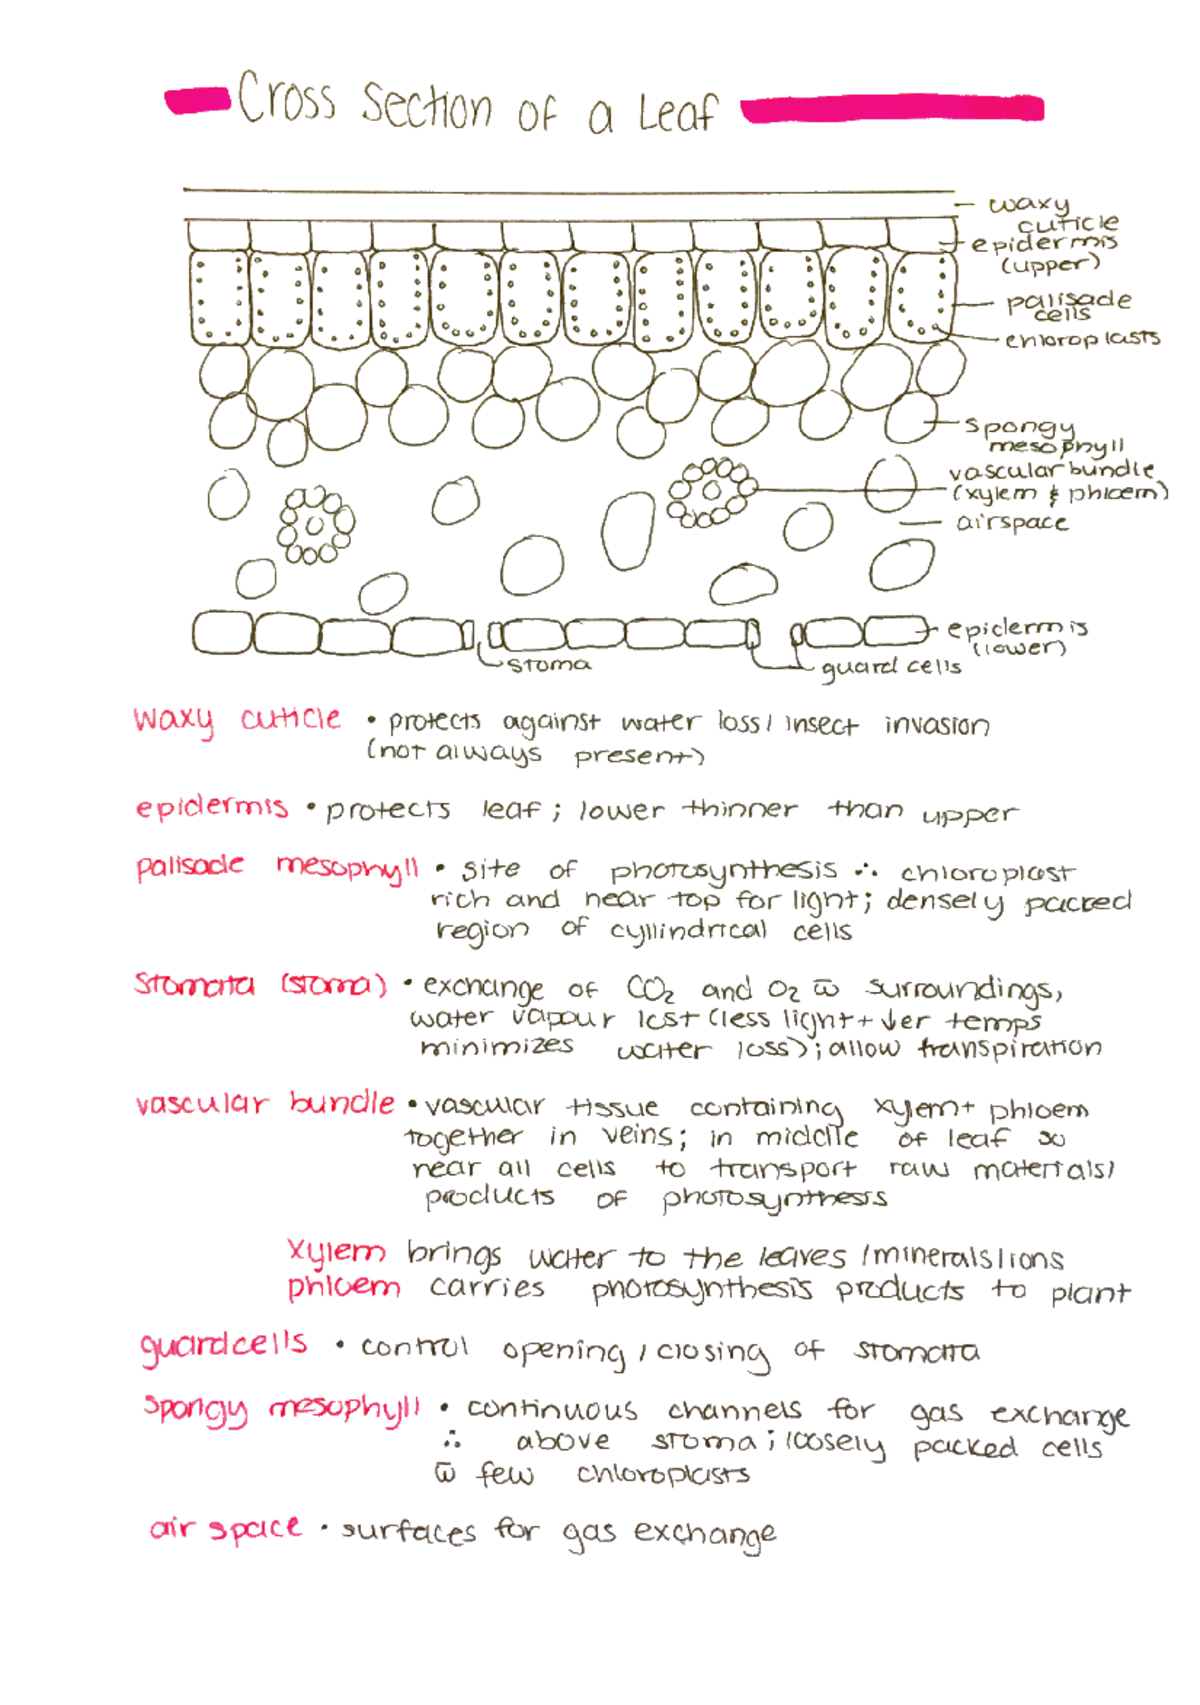 Cross Section of a Leaf
waxy
cuticle
epidermis
(upper)
palisade
cells
chloroplasts
spongy
mesophyll
vascular bundle
(xylem & phloem)
airspace
epidermis
(lower)
stoma
guard cells
waxy cuticle • protects against water loss/insect invasion
(not always present)
epidermis • protects leaf; lower thinner than upper
palisade mesophyll • site of photosynthesis ∴ chloroplast
rich and near top for light; densely packed
region of cyllindrical cells
Stomata (stoma) • exchange of CO₂ and O₂ w̅ surroundings,
water vapour lost (less light + ↓er temps
minimizes water loss); allow transpiration
vascular bundle • vascular tissue containing xylem + phloem
together in veins; in middle of leaf so
near all cells to transport raw materials/
products of photosynthesis
Xylem brings water to the leaves /minerals/ions
phloem carries photosynthesis products to plant
guard cells • control opening/closing of stomata
spongy mesophyll • continuous channels for gas exchange
∴ above stoma; loosely packed cells
w̅ few chloroplasts
air space • surfaces for gas exchange